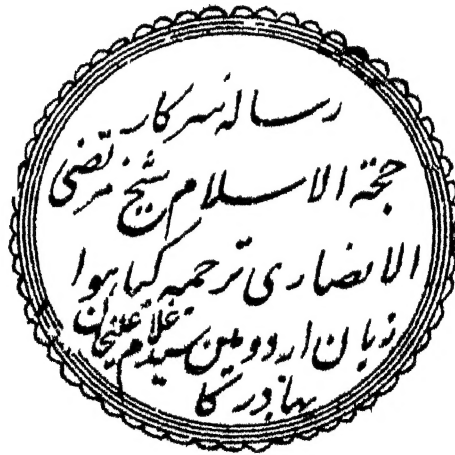 رسالہ سرکار
حجتہ الاسلام شیخ مرتضیٰ
الانصاری ترجمہ کیا ہوا
زبان اردو مین سید غلام
بہادر کا